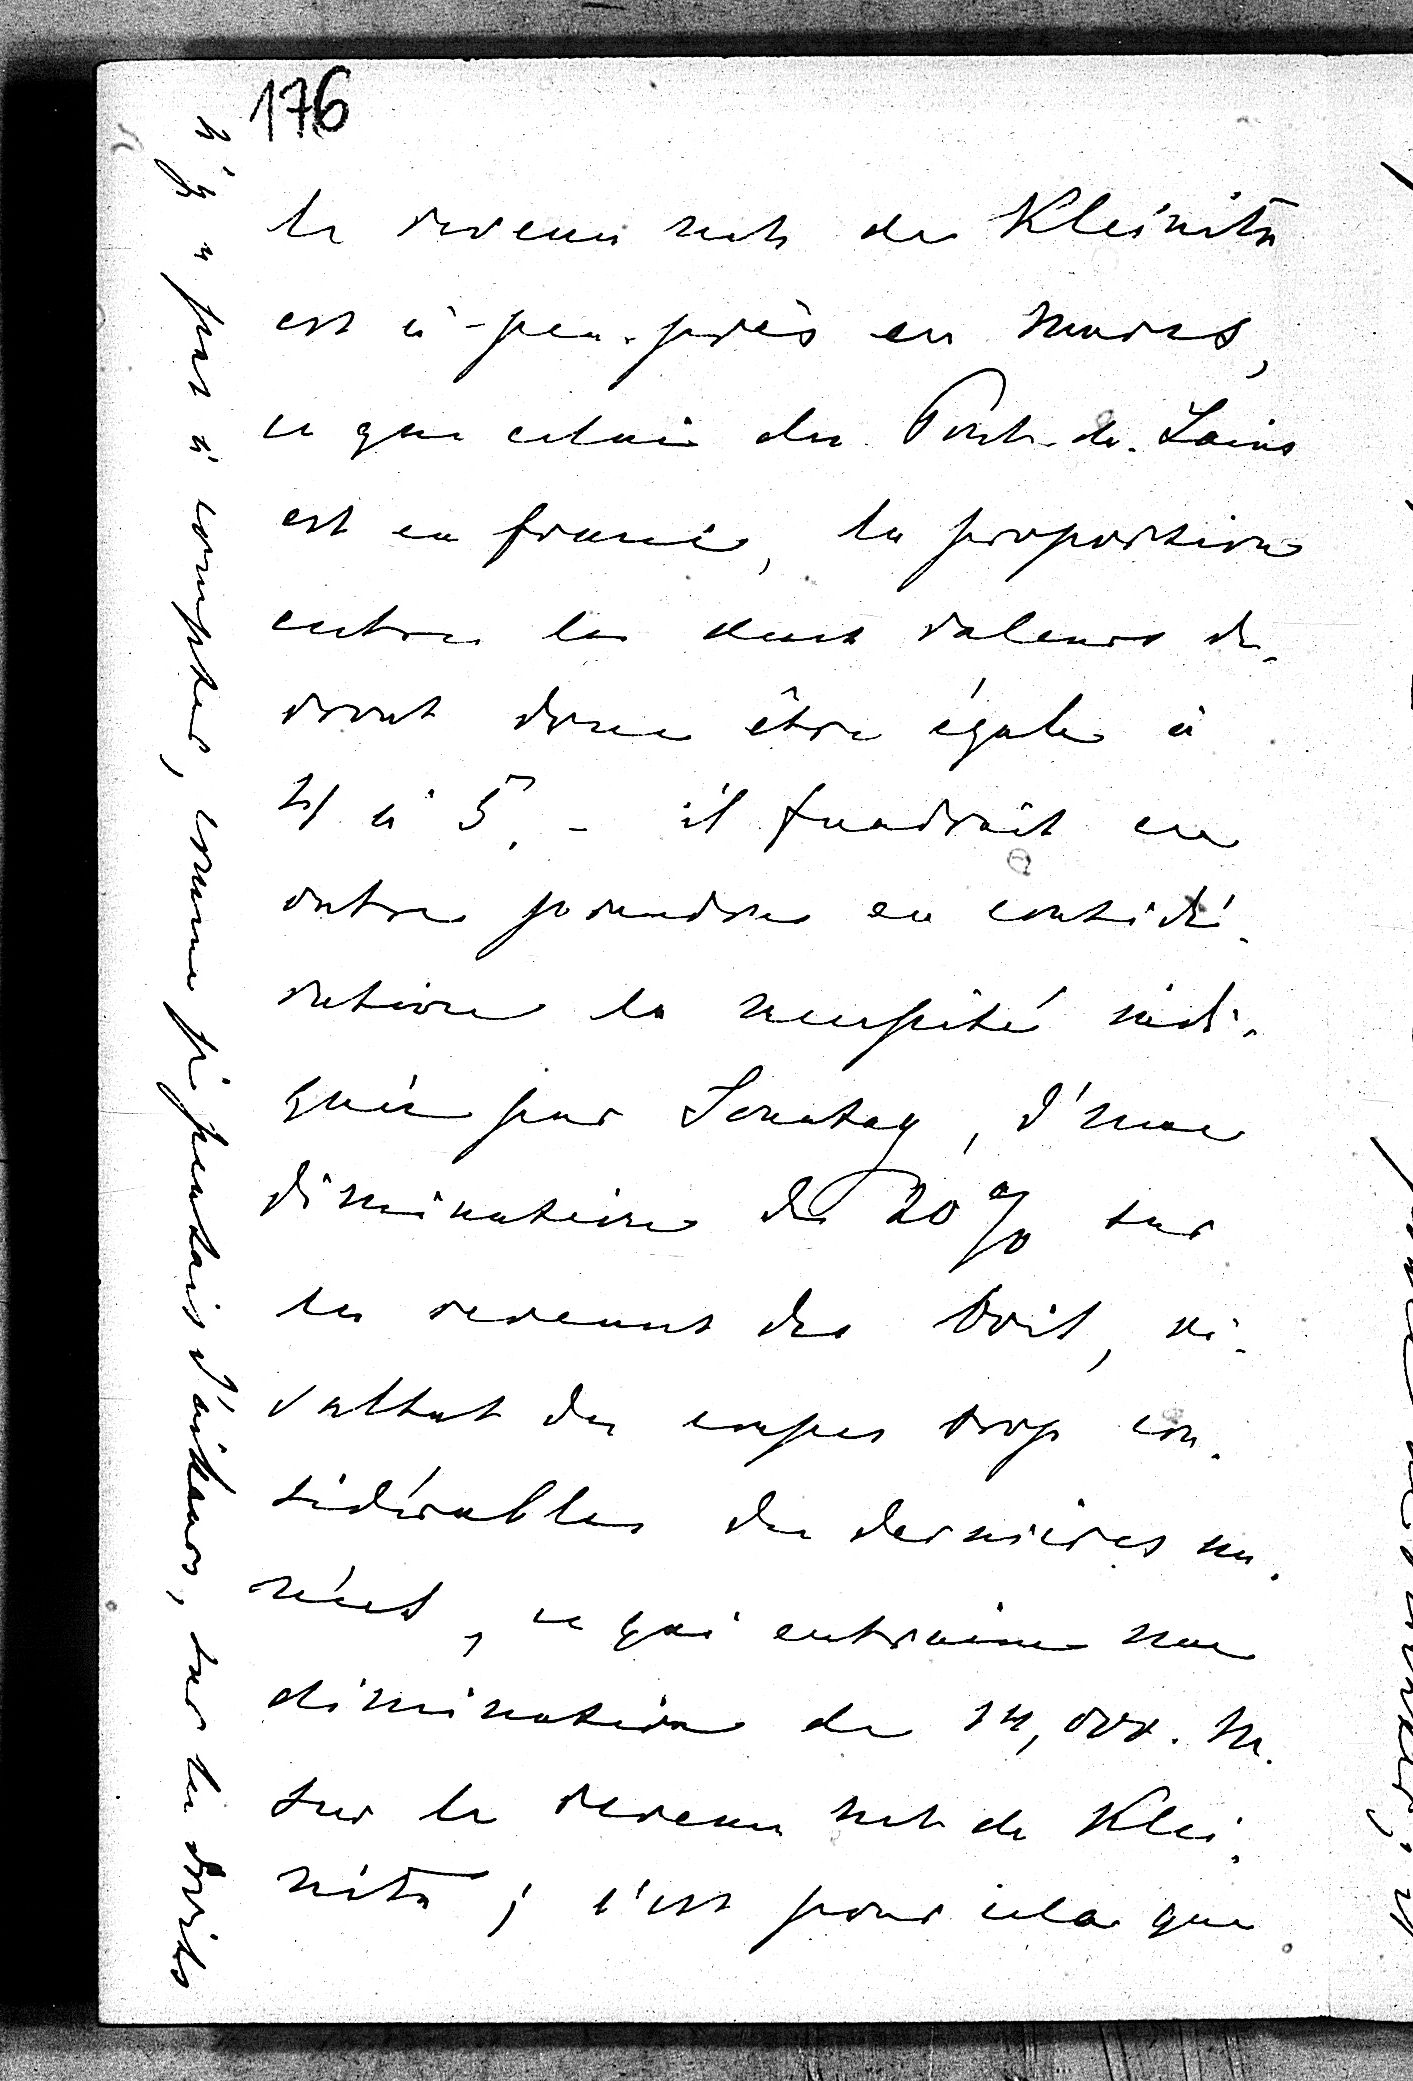 176
le revenu net de Kleinitz
est à-peu-près en marcs,
ce que celui du Pont-de-Loing
est en francs, la proportion
entre les deux valeurs de-
vrait donc être égale à
4 à 5, - il faudrait en
outre prendre en considé-
ration la nécessité indi-
quée par Sonntag, d'une
diminution de 20 % sur
les revenus des bois, ré-
sultat des coupes trop con-
sidérables des dernières an-
nées, ce qui entraîne une
diminution de 14,000. M.
sur le revenu net de Klei-
nitz; c'est pour cela que
n'y a pas à compter, comme je pensais d'ailleurs, sur les droits